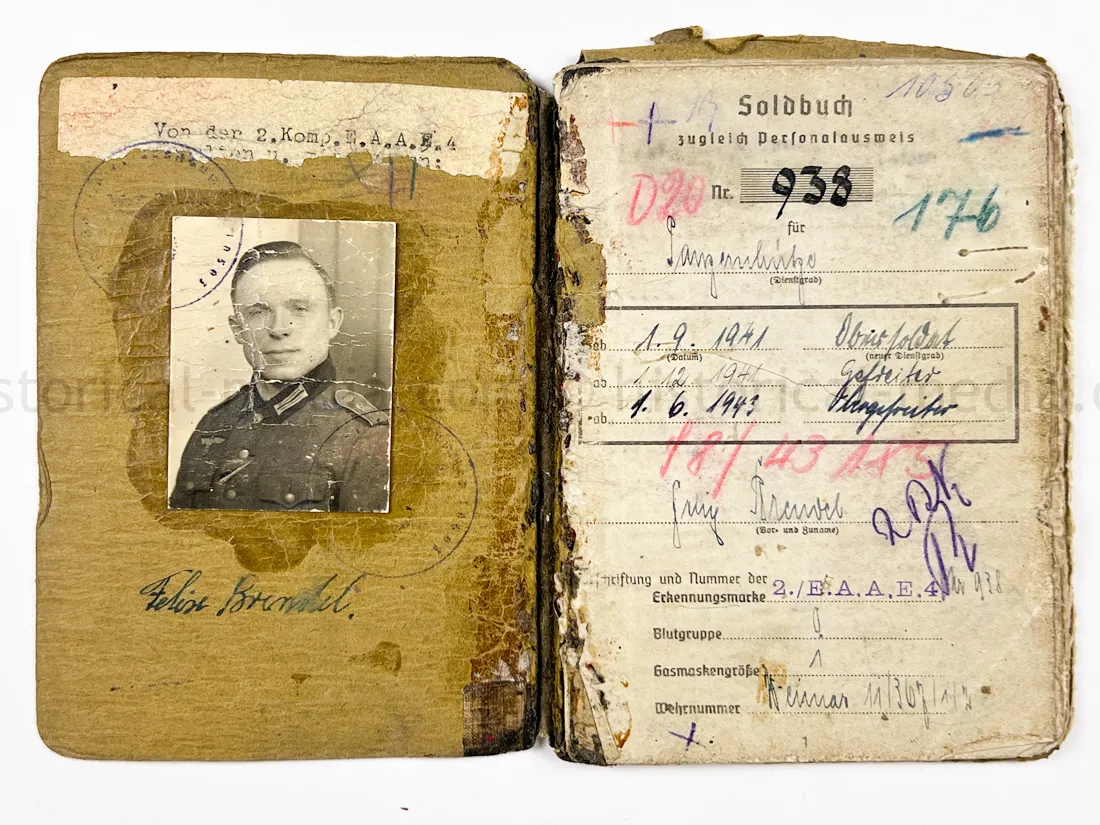 Von der 2.Komp.E.A.A.E.4
10503
Felix Brendel.
10503
Soldbuch
zugleich Personalausweis
D20 Nr. 938 176
für
Panzerschütze
(Dienstgrad)
ab 1.9.1941 Obersoldat
(Datum) (neuer Dienstgrad)
ab 1.12.1941 Gefreiter
ab 1.6.1943 Obergefreiter
Felix Brendel
(Vor- und Zuname)
schriftung und Nummer der
Erkennungsmarke 2./E.A.A.E.4 Nr 938
Blutgruppe 0
Gasmaskengröße 1
Wehrnummer Weimar 11/367/1/2
1